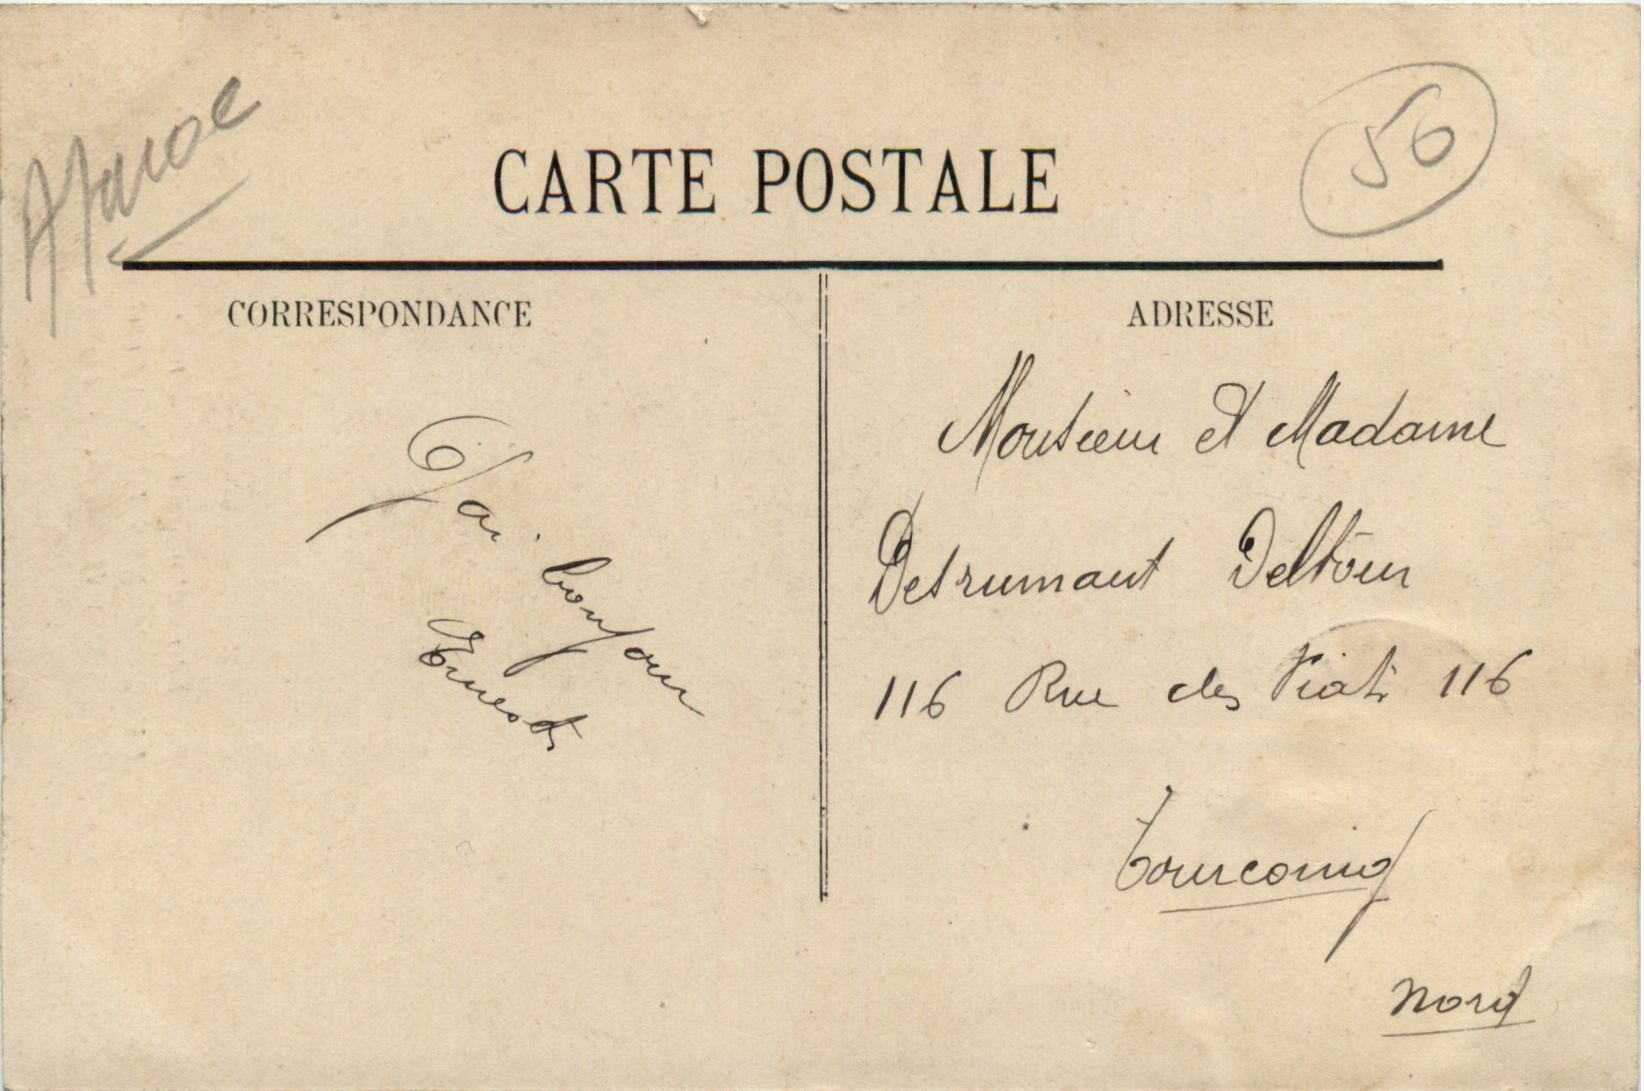 Maroc
50
CARTE POSTALE
CORRESPONDANCE
ADRESSE
Gai bonjour
Ernest
Monsieur et Madame
Destrumaut Deltour
116 Rue des Piats 116
Tourcoing
Nord